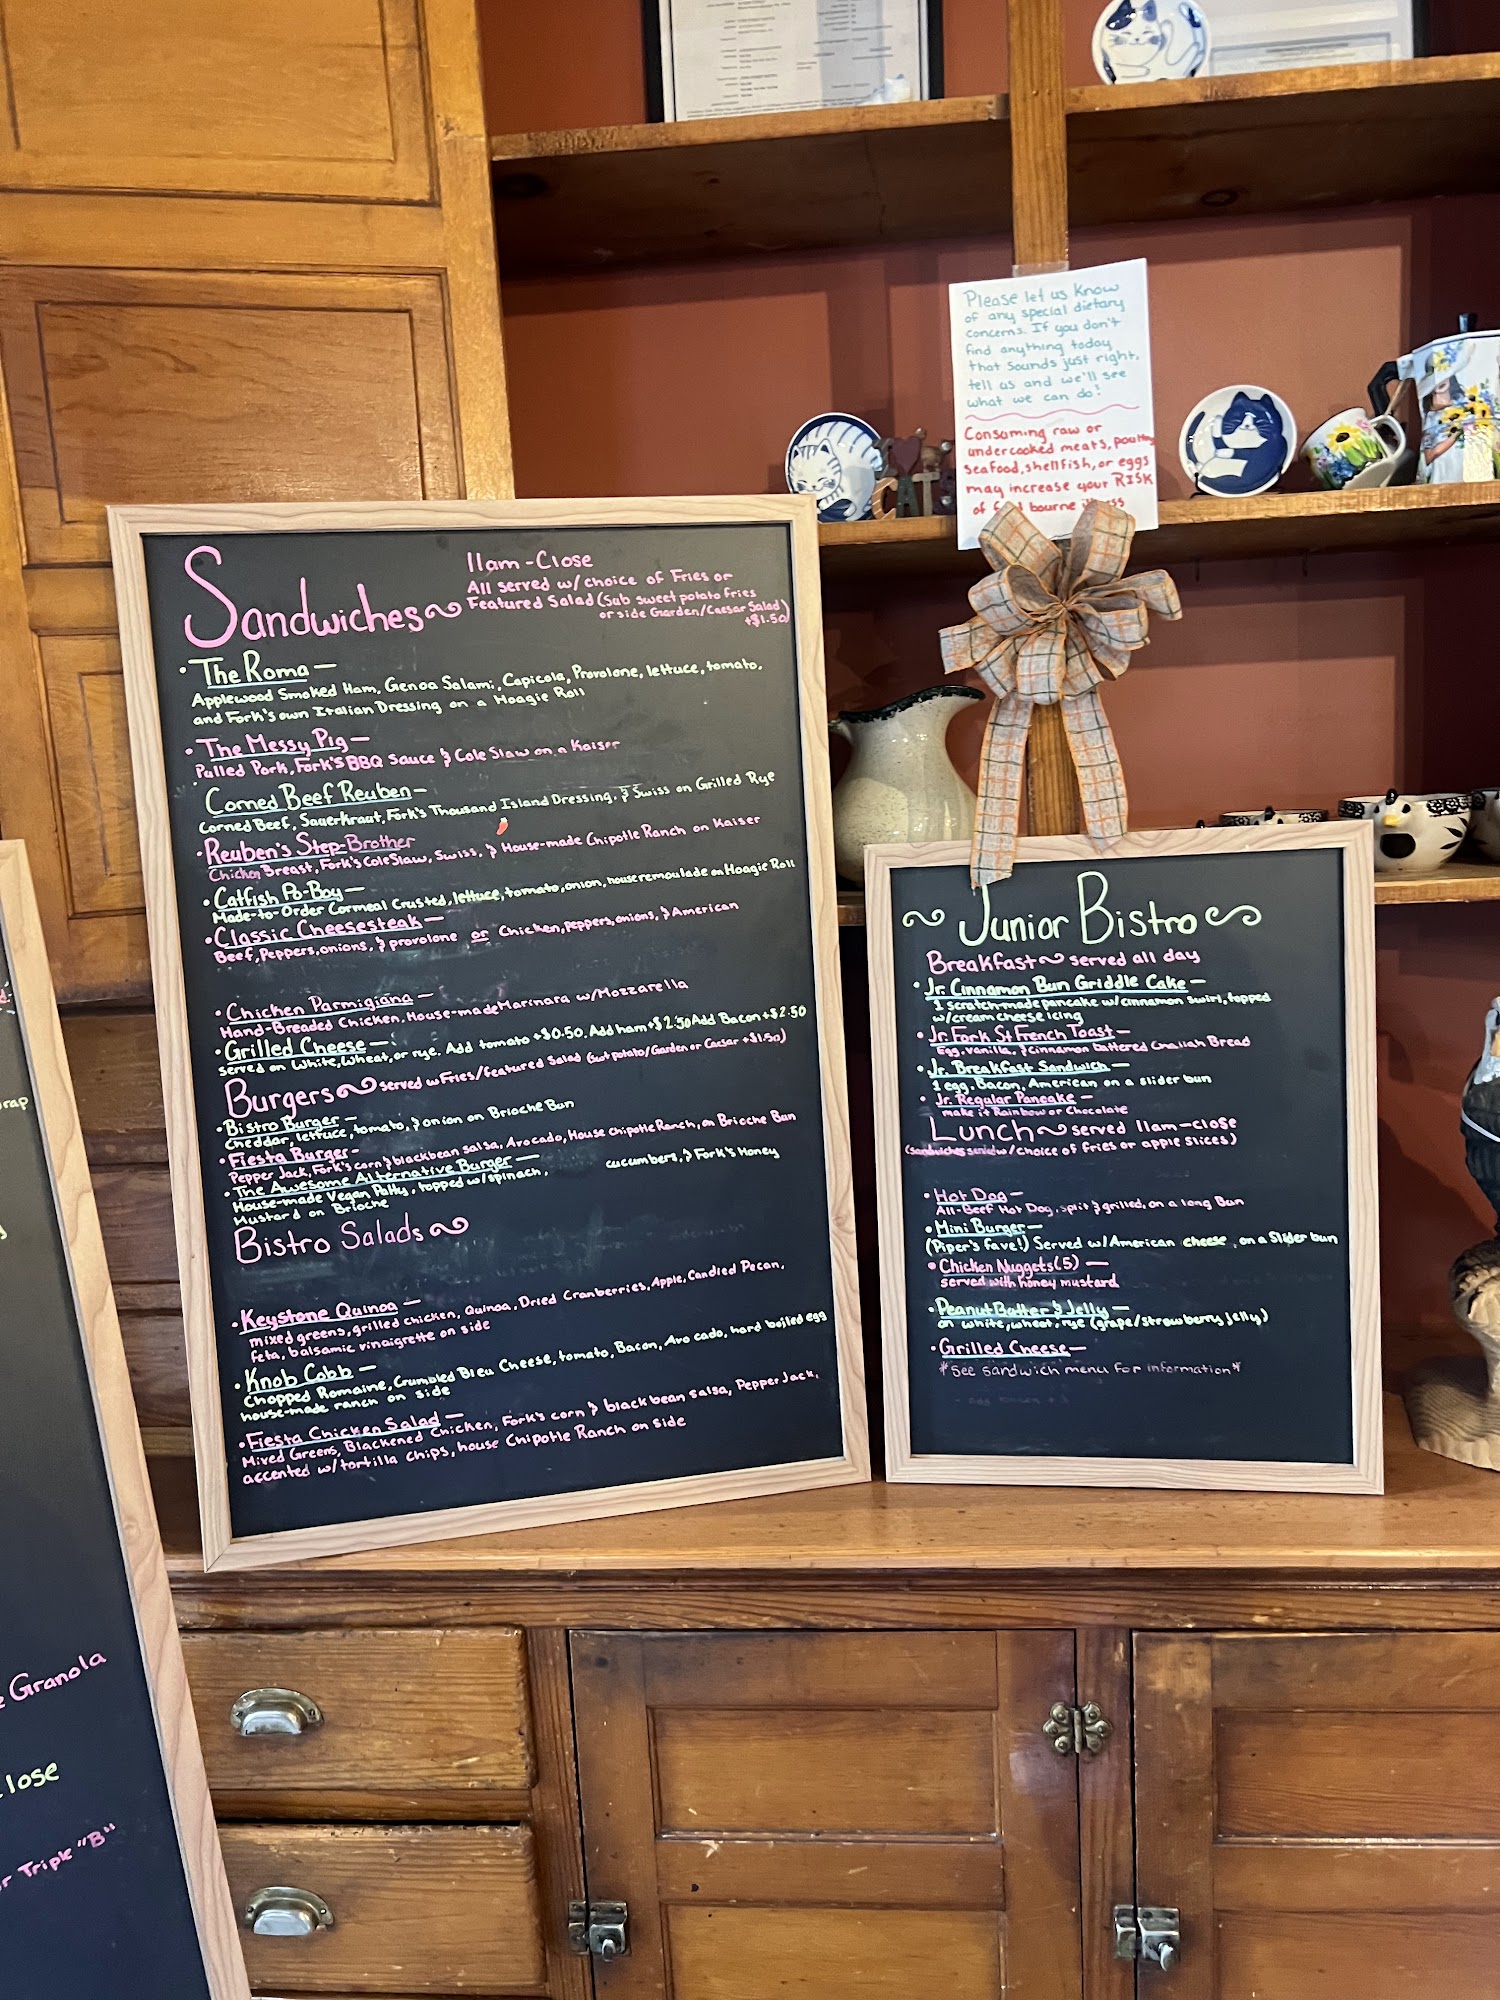 Please let us know
of any special dietary
concerns. If you don't
find anything today
that sounds just right,
tell us and we'll see
what we can do!
Consuming raw or
undercooked meats, poultry
seafood, shellfish, or eggs
may increase your RISK
of bourne
CATS
Sandwiches
11am-Close
All served w/choice of Fries or
Featured Salad (Sub sweet potato fries
or side Garden/Caesar Salad)
+$1.50
• The Roma —
Applewood Smoked Ham, Genoa Salami, Capicola, Provolone, lettuce, tomato,
and Fork's own Italian Dressing on a Hoagie Roll
• The Messy Pig —
Pulled Pork, Fork's BBQ Sauce & Cole Slaw on a Kaiser
Corned Beef Reuben —
Corned Beef, Sauerkraut, Fork's Thousand Island Dressing, & Swiss on Grilled Rye
• Reuben's Step-Brother
Chicken Breast, Fork's Cole Slaw, Swiss, & House-made Chipotle Ranch on Kaiser
• Catfish Po-Boy —
Made-to-Order Cormeal Crusted, lettuce, tomato, onion, house remoulade on Hoagie Roll
• Classic Cheesesteak —
Beef, Peppers, onions, & provolone or Chicken, peppers, onions, & American
• Chicken Parmigiana —
Hand-Breaded Chicken, House-made Marinara w/Mozzarella
• Grilled Cheese —
served on White, Wheat, or rye. Add tomato +$0.50. Add ham +$2.50 Add Bacon +$2.50
Burgers served w Fries/featured Salad (swt potato/Garden or Caesar +$1.50)
• Bistro Burger —
Cheddar, lettuce, tomato, & onion on Brioche Bun
• Fiesta Burger -
Pepper Jack, Fork's corn & blackbean salsa, Avocado, House Chipotle Ranch, on Brioche Bun
• The Awesome Alternative Burger —
House-made Vegan Patty, topped w/spinach, cucumbers, & Fork's Honey
Mustard on Brioche
Bistro Salads
• Keystone Quinoa —
mixed greens, grilled chicken, Quinoa, Dried Cranberries, Apple, Candied Pecan,
feta, balsamic vinaigrette on side
• Knob Cobb —
Chopped Romaine, Crumbled Bleu Cheese, tomato, Bacon, Avocado, hard boiled egg
house-made ranch on side
• Fiesta Chicken Salad —
Mixed Greens, Blackened Chicken, Fork's corn & black bean salsa, Pepper Jack,
accented w/tortilla chips, house Chipotle Ranch on side
Junior Bistro
Breakfast served all day
• Jr. Cinnamon Bun Griddle Cake —
1 scratch-made pancake w/cinnamon swirl, topped
w/cream cheese icing
• Jr. Fork St French Toast —
Egg, vanilla, & cinnamon battered Challah Bread
• Jr. Breakfast Sandwich —
1 egg, Bacon, American on a slider bun
• Jr. Regular Pancake —
make it Rainbow or Chocolate
Lunch served 11am-close
(sandwiches served w/choice of fries or apple slices)
• Hot Dog —
All-Beef Hot Dog, split & grilled, on a long Bun
• Mini Burger —
(Piper's fave!) Served w/American cheese, on a Slider bun
• Chicken Nuggets (5) —
served with honey mustard
• Peanut Butter & Jelly —
on white, wheat, rye (grape/strawberry jelly)
• Grilled Cheese —
*see sandwich menu for information*
rap
Granola
lose
r Triple "B"